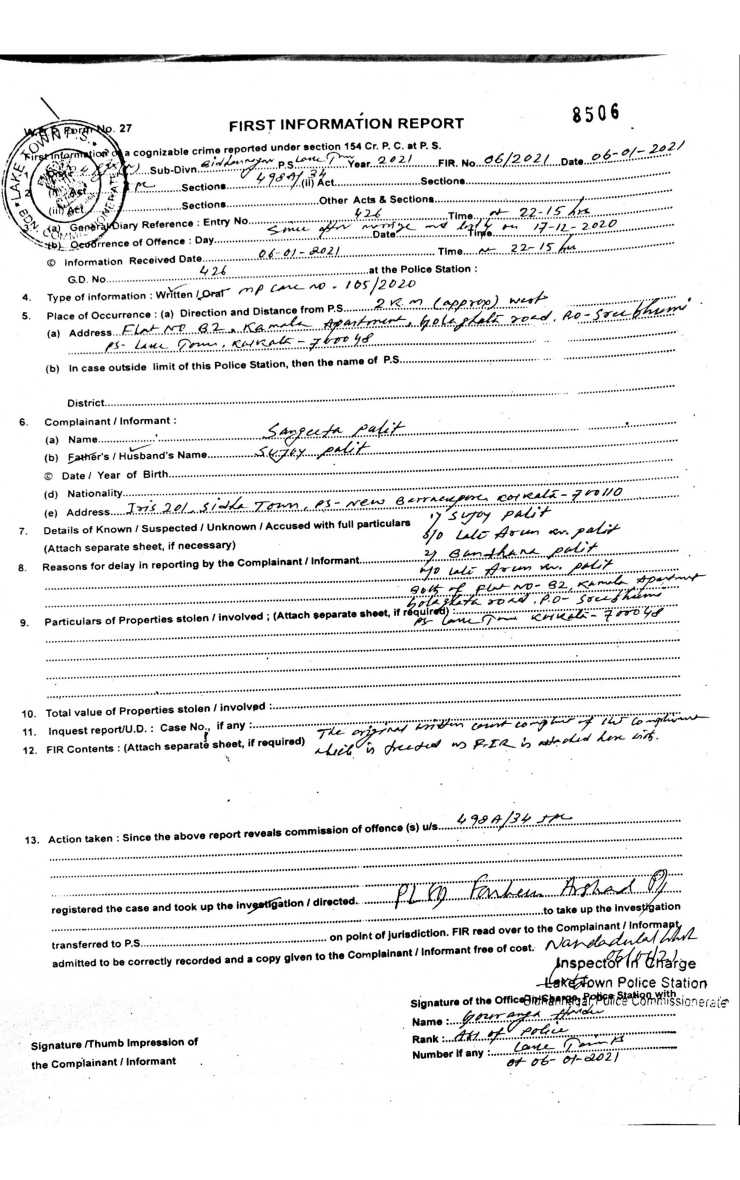 8506
W.B.P. Form No. 27 FIRST INFORMATION REPORT
First Information of a cognizable crime reported under section 154 Cr. P. C. at P. S.
1. Sub-Divn. Bidhannagar P.S. Lake Town Year 2021 FIR. No 06/2021 Date 06-01-2021
2. (i) Act Sections 498A/34 (ii) Act Sections
(iii) Act Sections Other Acts & Sections
3. (a) General Diary Reference : Entry No 426 Time at 22-15 hrs
(b) Occurrence of Offence : Day Since after marrige and lastly on 17-12-2020 Date Time
© Information Received Date 06-01-2021 Time at 22-15 hrs
G.D. No 426 at the Police Station :
4. Type of information : Written / Oral MP Case no - 105/2020
5. Place of Occurrence : (a) Direction and Distance from P.S. 2 K.m (approx) west
(a) Address Flat No B2, Kamala Apartment, Golaghata road, PO- Sreebhumi
PS- Lake Town, Kolkata - 700048
(b) In case outside limit of this Police Station, then the name of P.S.
District
6. Complainant / Informant :
(a) Name Sangeeta Palit
(b) Father's / Husband's Name Sujoy Palit
© Date / Year of Birth
(d) Nationality
(e) Address Iris 201, Sidha Town, PS- New Barrackpore Kolkata - 700110
7. Details of Known / Suspected / Unknown / Accused with full particulars 1) Sujoy Palit
(Attach separate sheet, if necessary) S/O Late Arun Kr. Palit
8. Reasons for delay in reporting by the Complainant / Informant 2) Bandhana Palit
W/O Late Arun Kr. Palit
Both of Flat No- B2, Kamala Apartment
Golaghata road, P.O- Sreebhumi
9. Particulars of Properties stolen / involved ; (Attach separate sheet, if required) :
PS- Lake Town Kolkata - 700048
10. Total value of Properties stolen / involved :
11. Inquest report/U.D. : Case No., if any :
12. FIR Contents : (Attach separate sheet, if required) The original written court complaint of the complainant
which is treated as F.I.R is attached here with.
13. Action taken : Since the above report reveals commission of offence (s) u/s. 498A/34 IPC
registered the case and took up the investigation / directed. Arshad
to take up the Investigation
transferred to P.S. on point of jurisdiction. FIR read over to the Complainant / Informant
admitted to be correctly recorded and a copy given to the Complainant / Informant free of cost.
Inspector In Charge
Lake Town Police Station
Signature of the Officer In Charge, Police Station with
Bidhannagar Police Commissionerate
Name : Gouranga
Rank : ASI of Police
Number if any : Lake Town PS
of 06-01-2021
Signature /Thumb Impression of
the Complainant / Informant